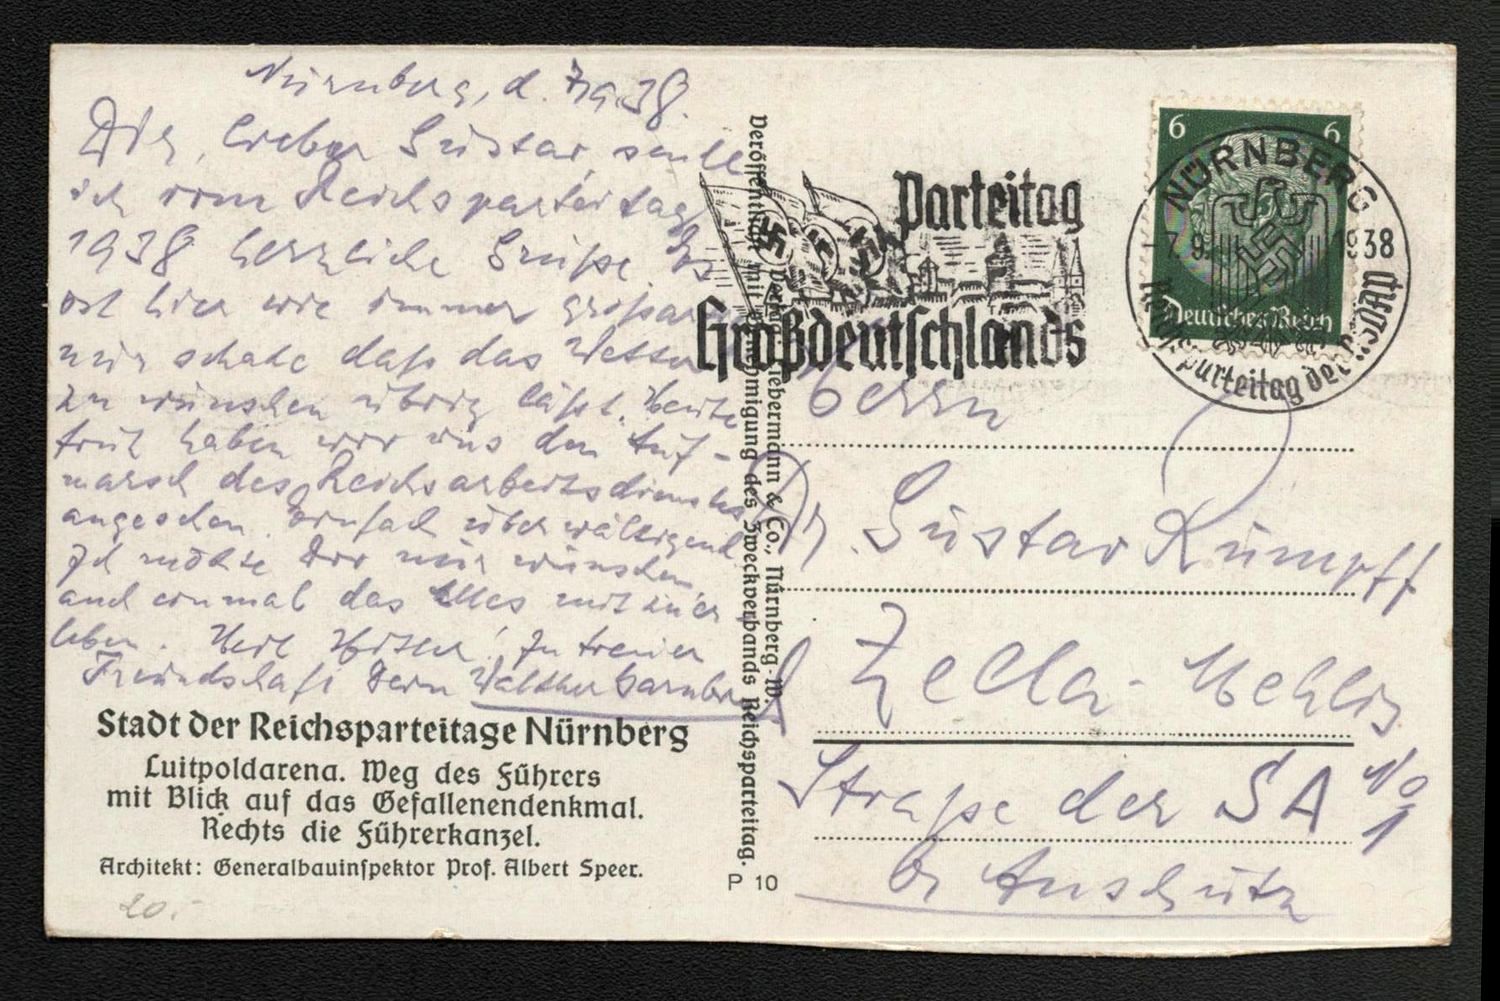 Nürnberg, d. 7.9.38.
Dir, lieber Gustav, sende
ich vom Reichsparteitag
1938 herzliche Grüße. Es
ist hier wie immer großartig
nur schade daß das Wetter
zu wünschen übrig läßt. Heute
früh haben wir uns den Auf-
marsch des Reichsarbeitsdienstes
angesehen. Einfach überwältigend
Ich möchte Dir nur wünschen
auch einmal das Alles mit zu er
leben. Heil Hitler! In treuer
Freundschaft Dein Walther
Stadt der Reichsparteitage Nürnberg
Luitpoldarena. Weg des Führers
mit Blick auf das Gefallenendenkmal.
Rechts die Führerkanzel.
Architekt: Generalbauinspektor Prof. Albert Speer.
20.-
Veröffentlicht mit Genehmigung des Zweckverbands Reichsparteitag.
Verlag Liebermann & Co., Nürnberg-W.
P 10
Parteitag
Großdeutschlands
6 6
Deutsches Reich
NÜRNBERG
-7.9. 1938
Reichsparteitag der NSDAP
Herrn
Dr. Gustav Rumpff
Zella-Mehlis
Straße der SA No 1
b/ Anschütz